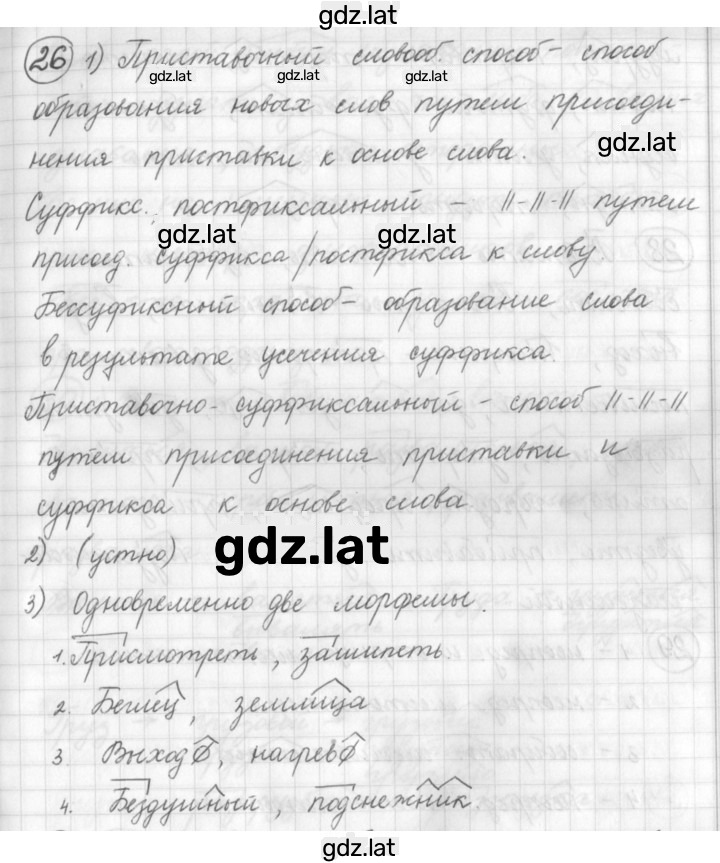 gdz.lat
26 1) Приставочный словооб. способ - способ
gdz.lat gdz.lat gdz.lat
образования новых слов путем присоеди-
нения приставки к основе слова.
gdz.lat
Суффикс., постфиксальный - 11-11-11 путем
gdz.lat gdz.lat
присоед. суффикса/постфикса к слову.
Бессуфиксный способ - образование слова
в результате усечения суффикса.
Приставочно-суффиксальный - способ 11-11-11
путём присоединения приставки и
суффикса к основе слова.
2) (устно)
gdz.lat
3) Одновременно две морфемы.
1. Присмотреть, зашипеть
2. Беглец, землица
3. Выход∅, нагрев∅
4. Бездушный, подснежник.
gdz.lat